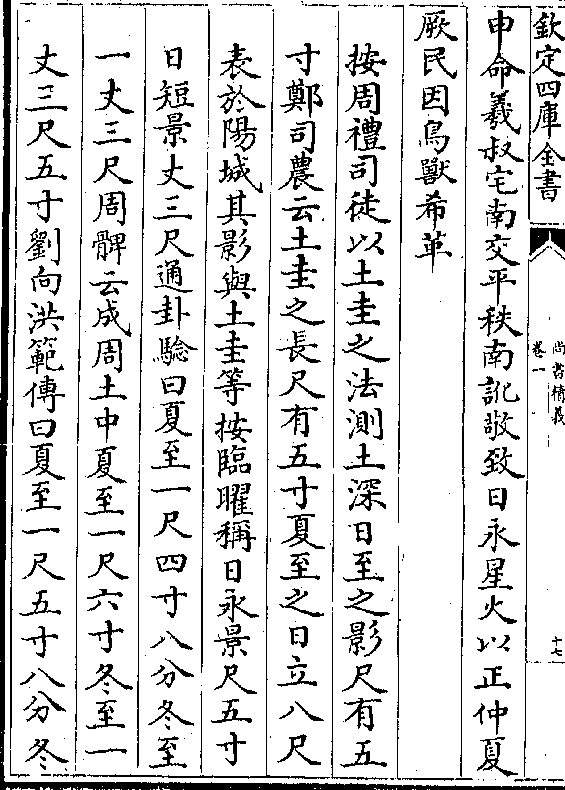 欽定四庫全書
尚書精義
卷一
十七
申命羲叔宅南交平秩南訛敬致日永星火以正仲夏
厥民因鳥獸希革
按周禮司徒以土圭之法測土深日至之影尺有五
寸鄭司農云土圭之長尺有五寸夏至之日立八尺
表於陽城其影與土圭等按臨曜稱日永景尺五寸
日短景丈三尺通卦驗曰夏至一尺四寸八分冬至
一丈三尺周髀云成周土中夏至一尺六寸冬至一
丈三尺五寸劉向洪範傳曰夏至一尺五寸八分冬